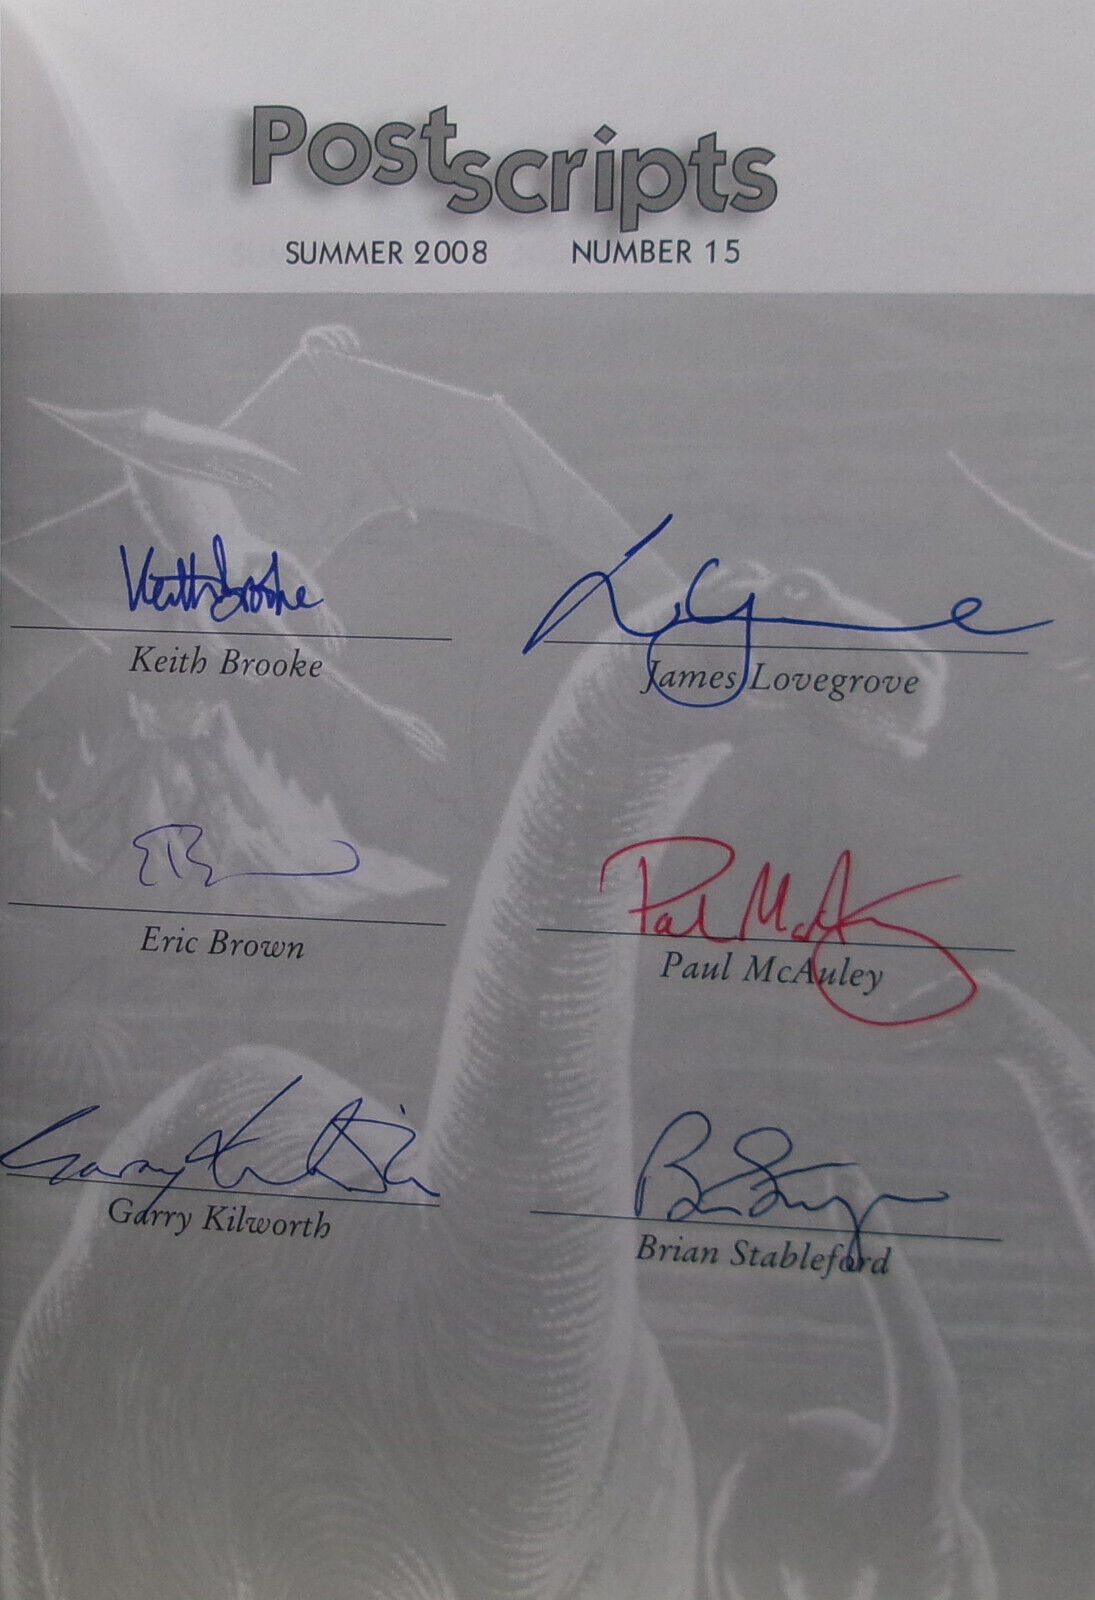 Postscripts
SUMMER 2008 NUMBER 15
Keith Brooke
Keith Brooke
James Lovegrove
Eric Brown
Paul McAuley
Paul McAuley
Garry Kilworth
Brian Stableford